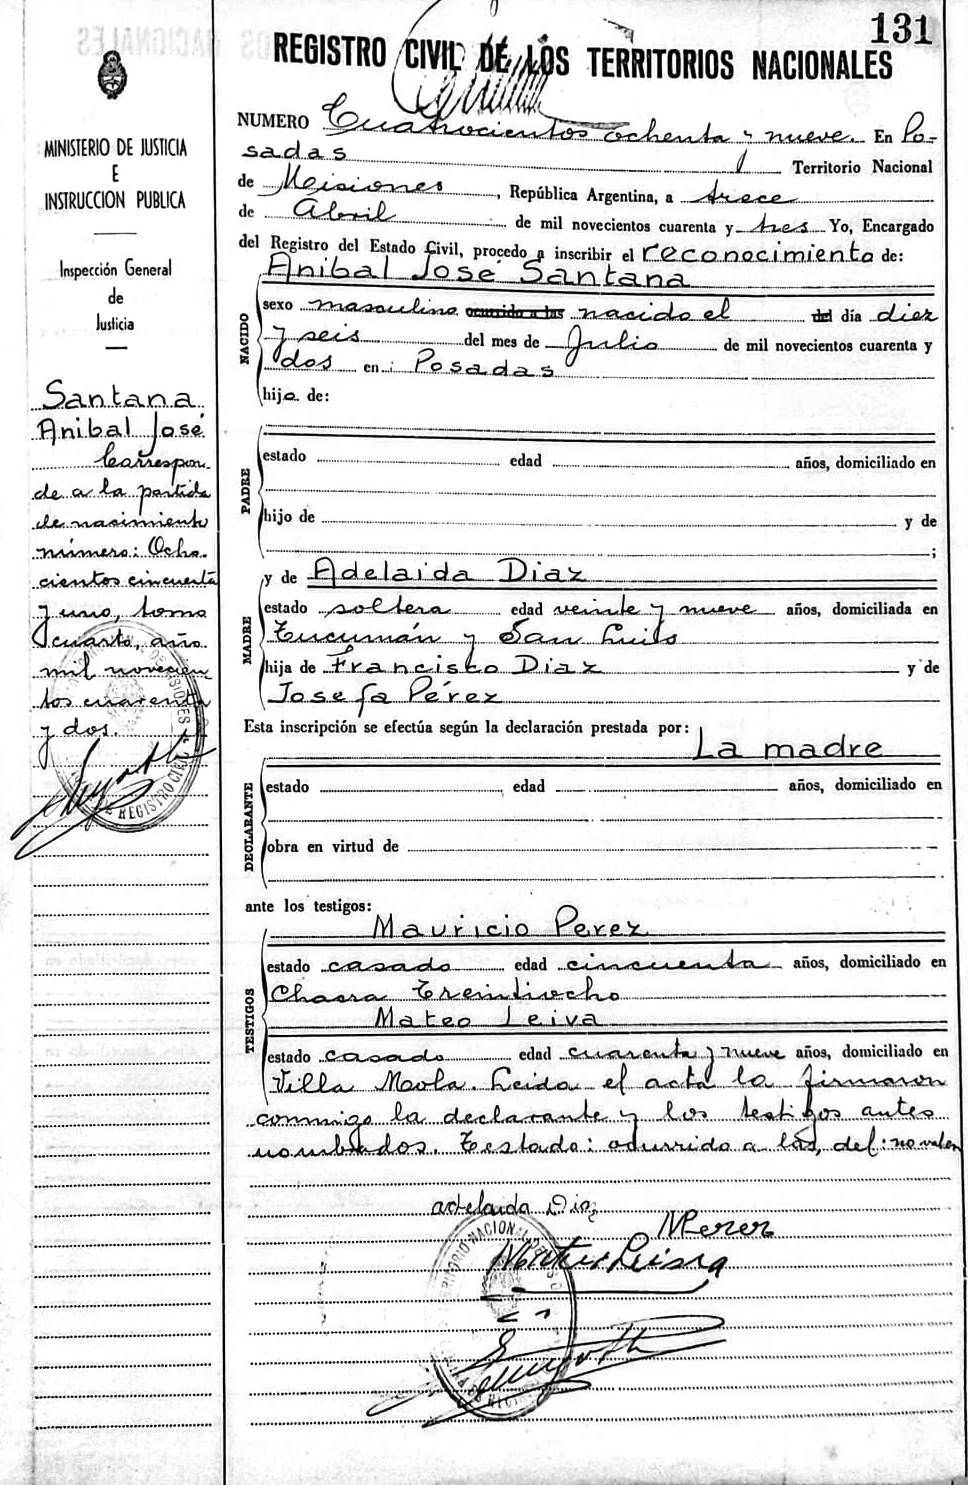 131
REGISTRO CIVIL DE LOS TERRITORIOS NACIONALES
MINISTERIO DE JUSTICIA
E
INSTRUCCION PUBLICA
Inspección General
de
Justicia
Santana
Anibal José
Correspon-
de a la partida
de nacimiento
número: Ocho-
cientos cincuenta
y uno, tomo
cuarto, año
mil novecien
tos cuarenta
y dos.
NUMERO Cuatrocientos ochenta y nueve. En Po-
sadas Territorio Nacional
de Misiones, República Argentina, a trece
de Abril de mil novecientos cuarenta y tres Yo, Encargado
del Registro del Estado Civil, procedo a inscribir el reconocimiento de:
Anibal José Santana
NACIDO
sexo masculino ocurrido a las nacido el del día diez
y seis del mes de Julio de mil novecientos cuarenta y
dos en: Posadas
hijo de:
PADRE
estado edad años, domiciliado en
hijo de y de
;
MADRE
y de Adelaida Diaz
estado soltera edad veinte y nueve años, domiciliada en
Tucumán y San Luis
hija de Francisco Diaz y de
Josefa Pérez
Esta inscripción se efectúa según la declaración prestada por:
La madre
DECLARANTE
estado , edad años, domiciliado en
obra en virtud de
ante los testigos:
Mauricio Perez
TESTIGOS
estado casado edad cincuenta años, domiciliado en
Chacra Treintiocho
Mateo Leiva
estado casado edad cuarenta y nueve años, domiciliado en
Villa Mola. Leida el acta la firmaron
conmigo la declarante y los testigos antes
nombrados. Testado: ocurrido a las, del: no valen
adelaida Diaz
MPerez
Mateo Leiva